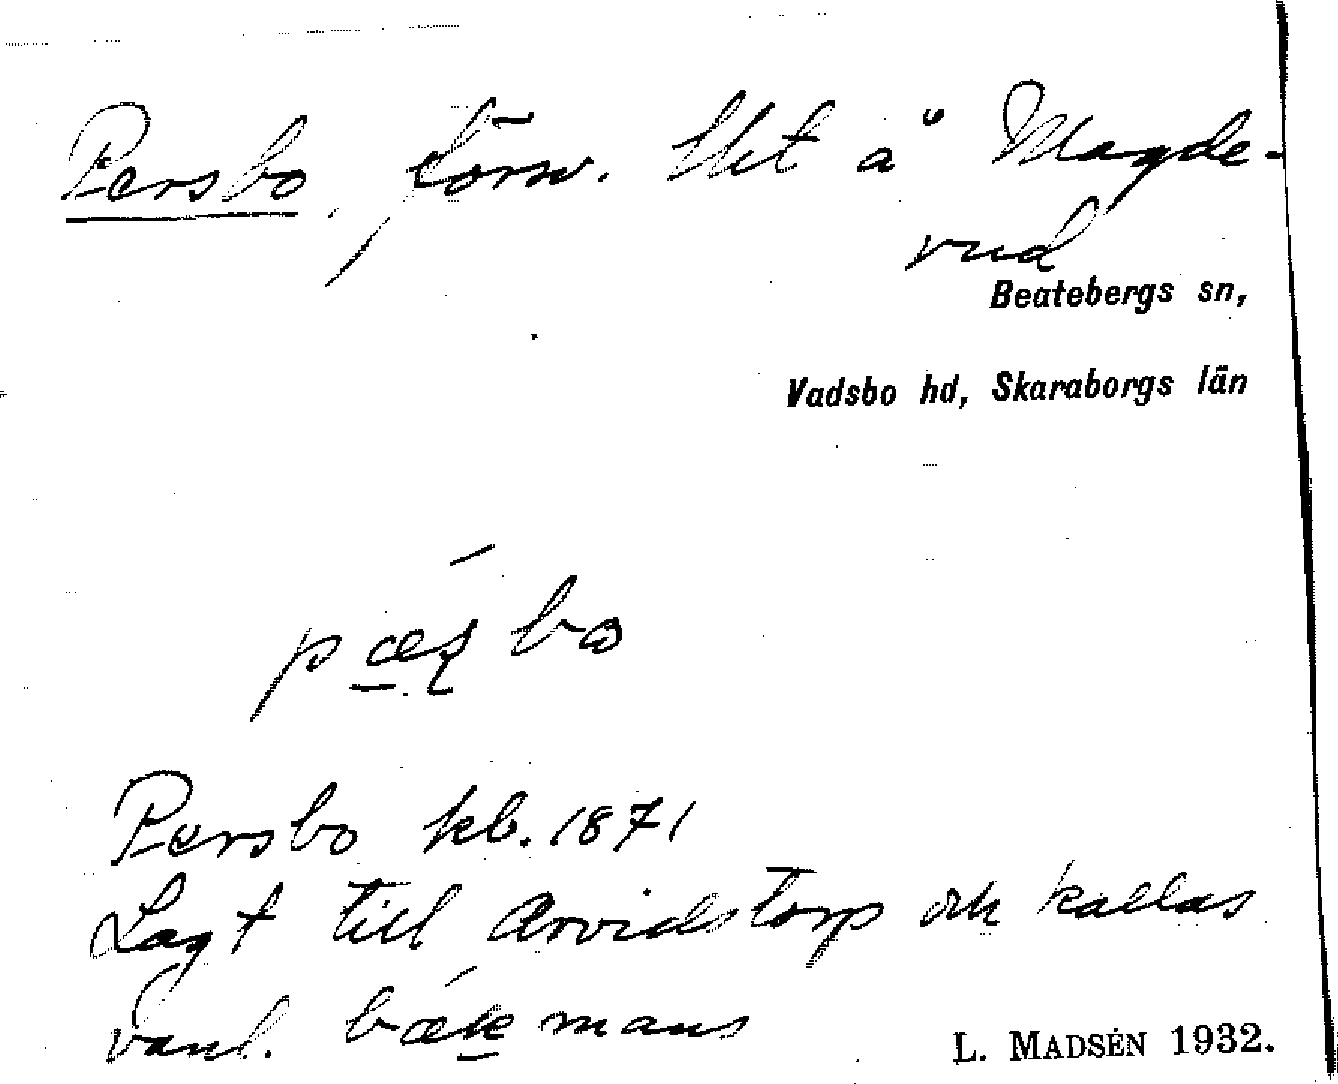 Persbo, försv. lht å Magde-
rud
Beatebergs sn,
Vadsbo hd, Skaraborgs län
Persbo kb. 1871
Lagt till Arvidstorp och kallas
vanl. bækmans
L. MADSÉN 1932.